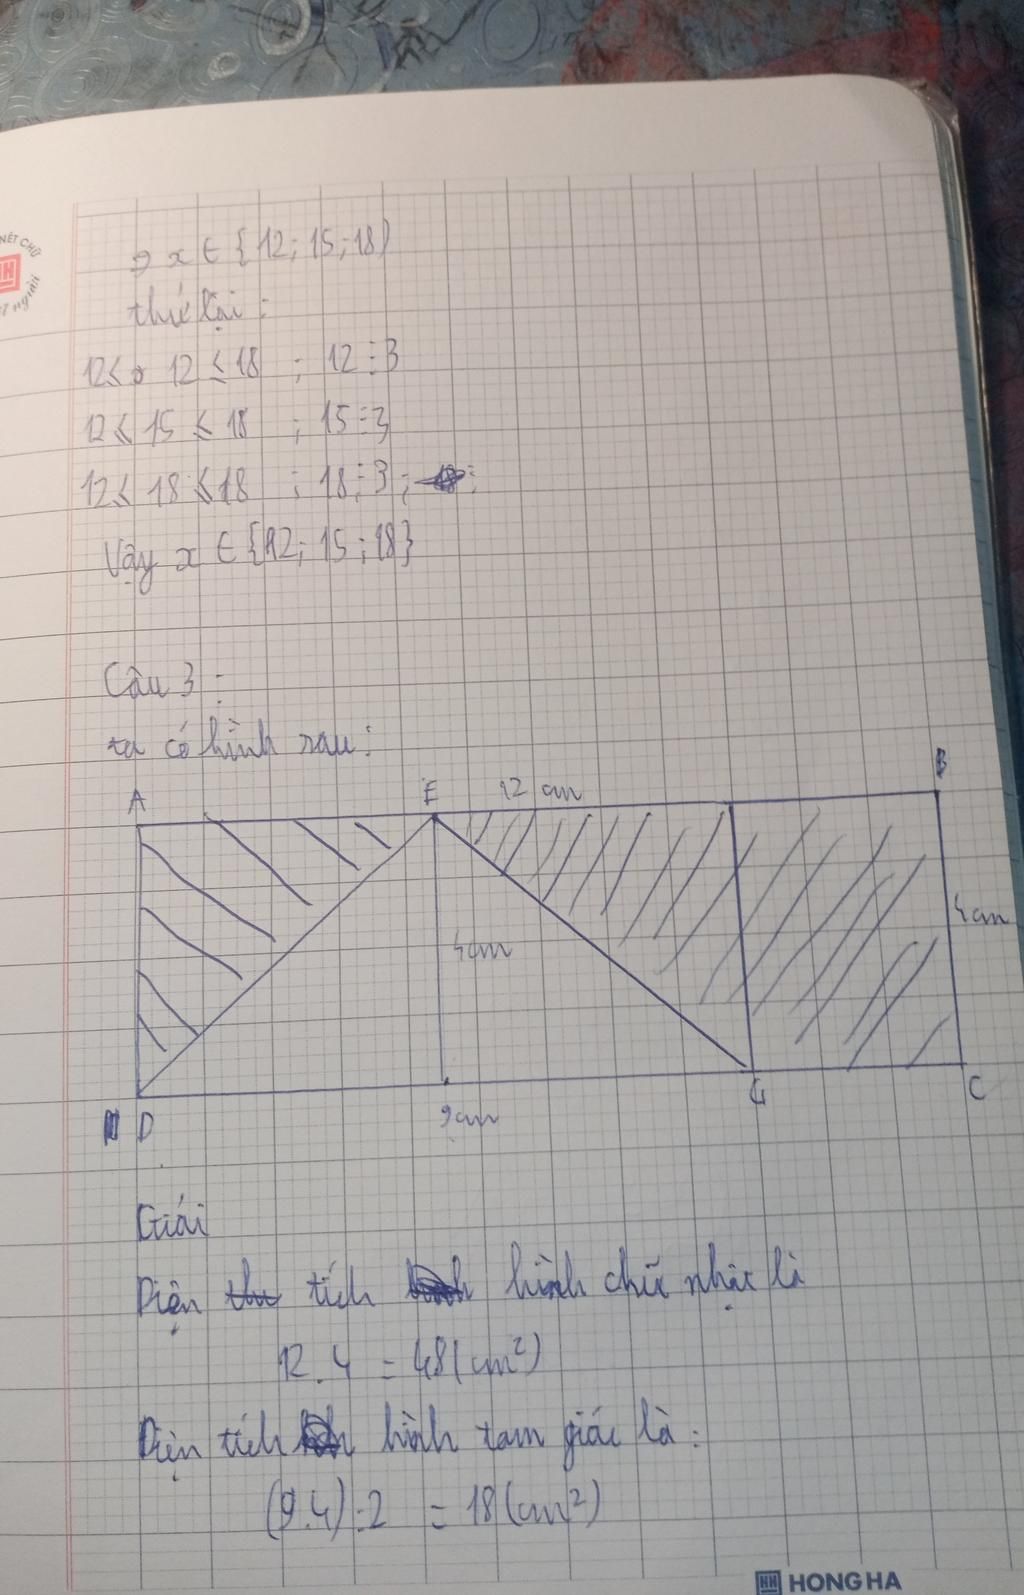 NÉT CHỮ
=> x ∈ {12; 15; 18)
thử lại:
12 ≤ 12 ≤ 18 ; 12 ⋮ 3
12 ≤ 15 ≤ 18 ; 15 ⋮ 3
12 ≤ 18 ≤ 18 ; 18 ⋮ 3 ;
Vậy x ∈ {12; 15; 18}
Câu 3:
ta có hình sau:
A E 12 cm B
4cm 4cm
D 9cm G C
Giải
Diện tích hình chữ nhật là
12.4 = 48(cm²)
Diện tích hình tam giác là:
(9.4):2 = 18(cm²)
HONG HA